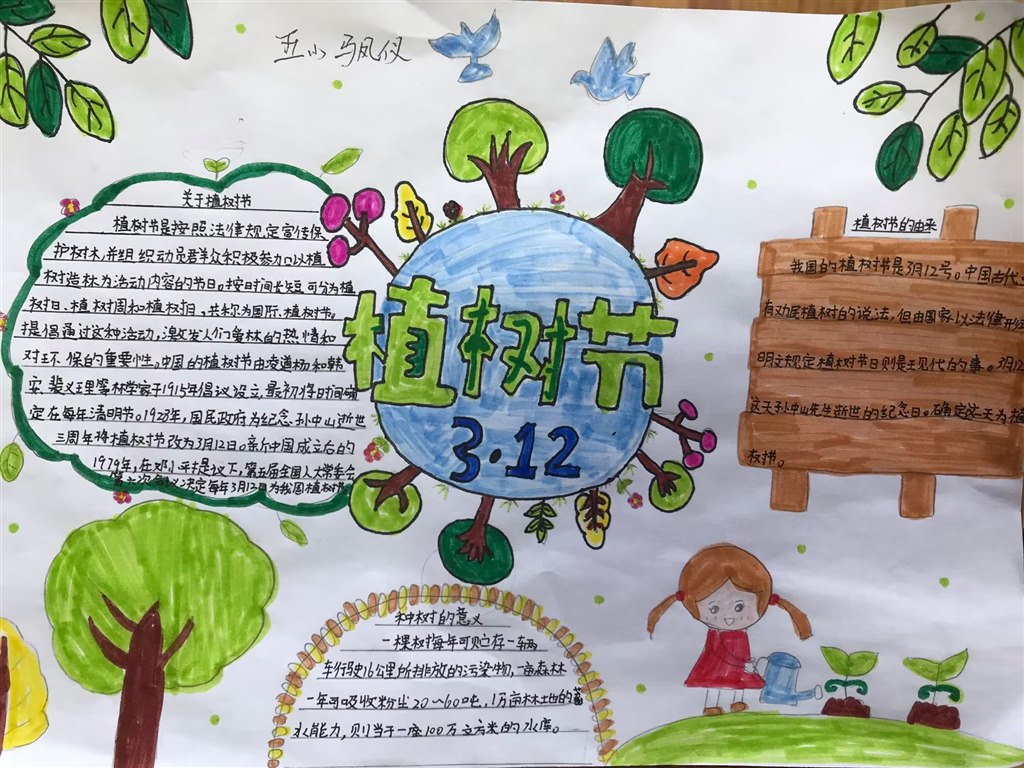 五小 马凤仪
关于植树节
植树节是按照法律规定宣传保
护树木,并组织动员群众积极参加以植
树造林为活动内容的节日。按时间长短可分为植
树日、植树周和植树月,共称为国际植树节。
提倡通过这种活动,激发人们爱林的热情和
对环保的重要性。中国的植树节由凌道扬和韩
安、裴义理等林学家于1915年倡议设立,最初将时间确
定在每年清明节。1928年,国民政府为纪念孙中山逝世
三周年将植树节改为3月12日。新中国成立后的
1979年,在邓小平提议下,第五届全国人大常委会
第六次会议决定每年3月12日为我国植树节
植树节
3·12
植树节的由来
我国的植树节是3月12号。中国古代
有劝民植树的说法,但由国家以法律形式
明文规定植树节日则是现代的事。3月12
这天孙中山先生逝世的纪念日。确定这天为植
树节。
种树的意义
一棵树每年可贮存一辆
车行驶16公里所排放的污染物,一亩森林
一年可吸收粉尘20~60吨,1万亩林地的蓄
水能力,则当于一座100万立方米的水库。